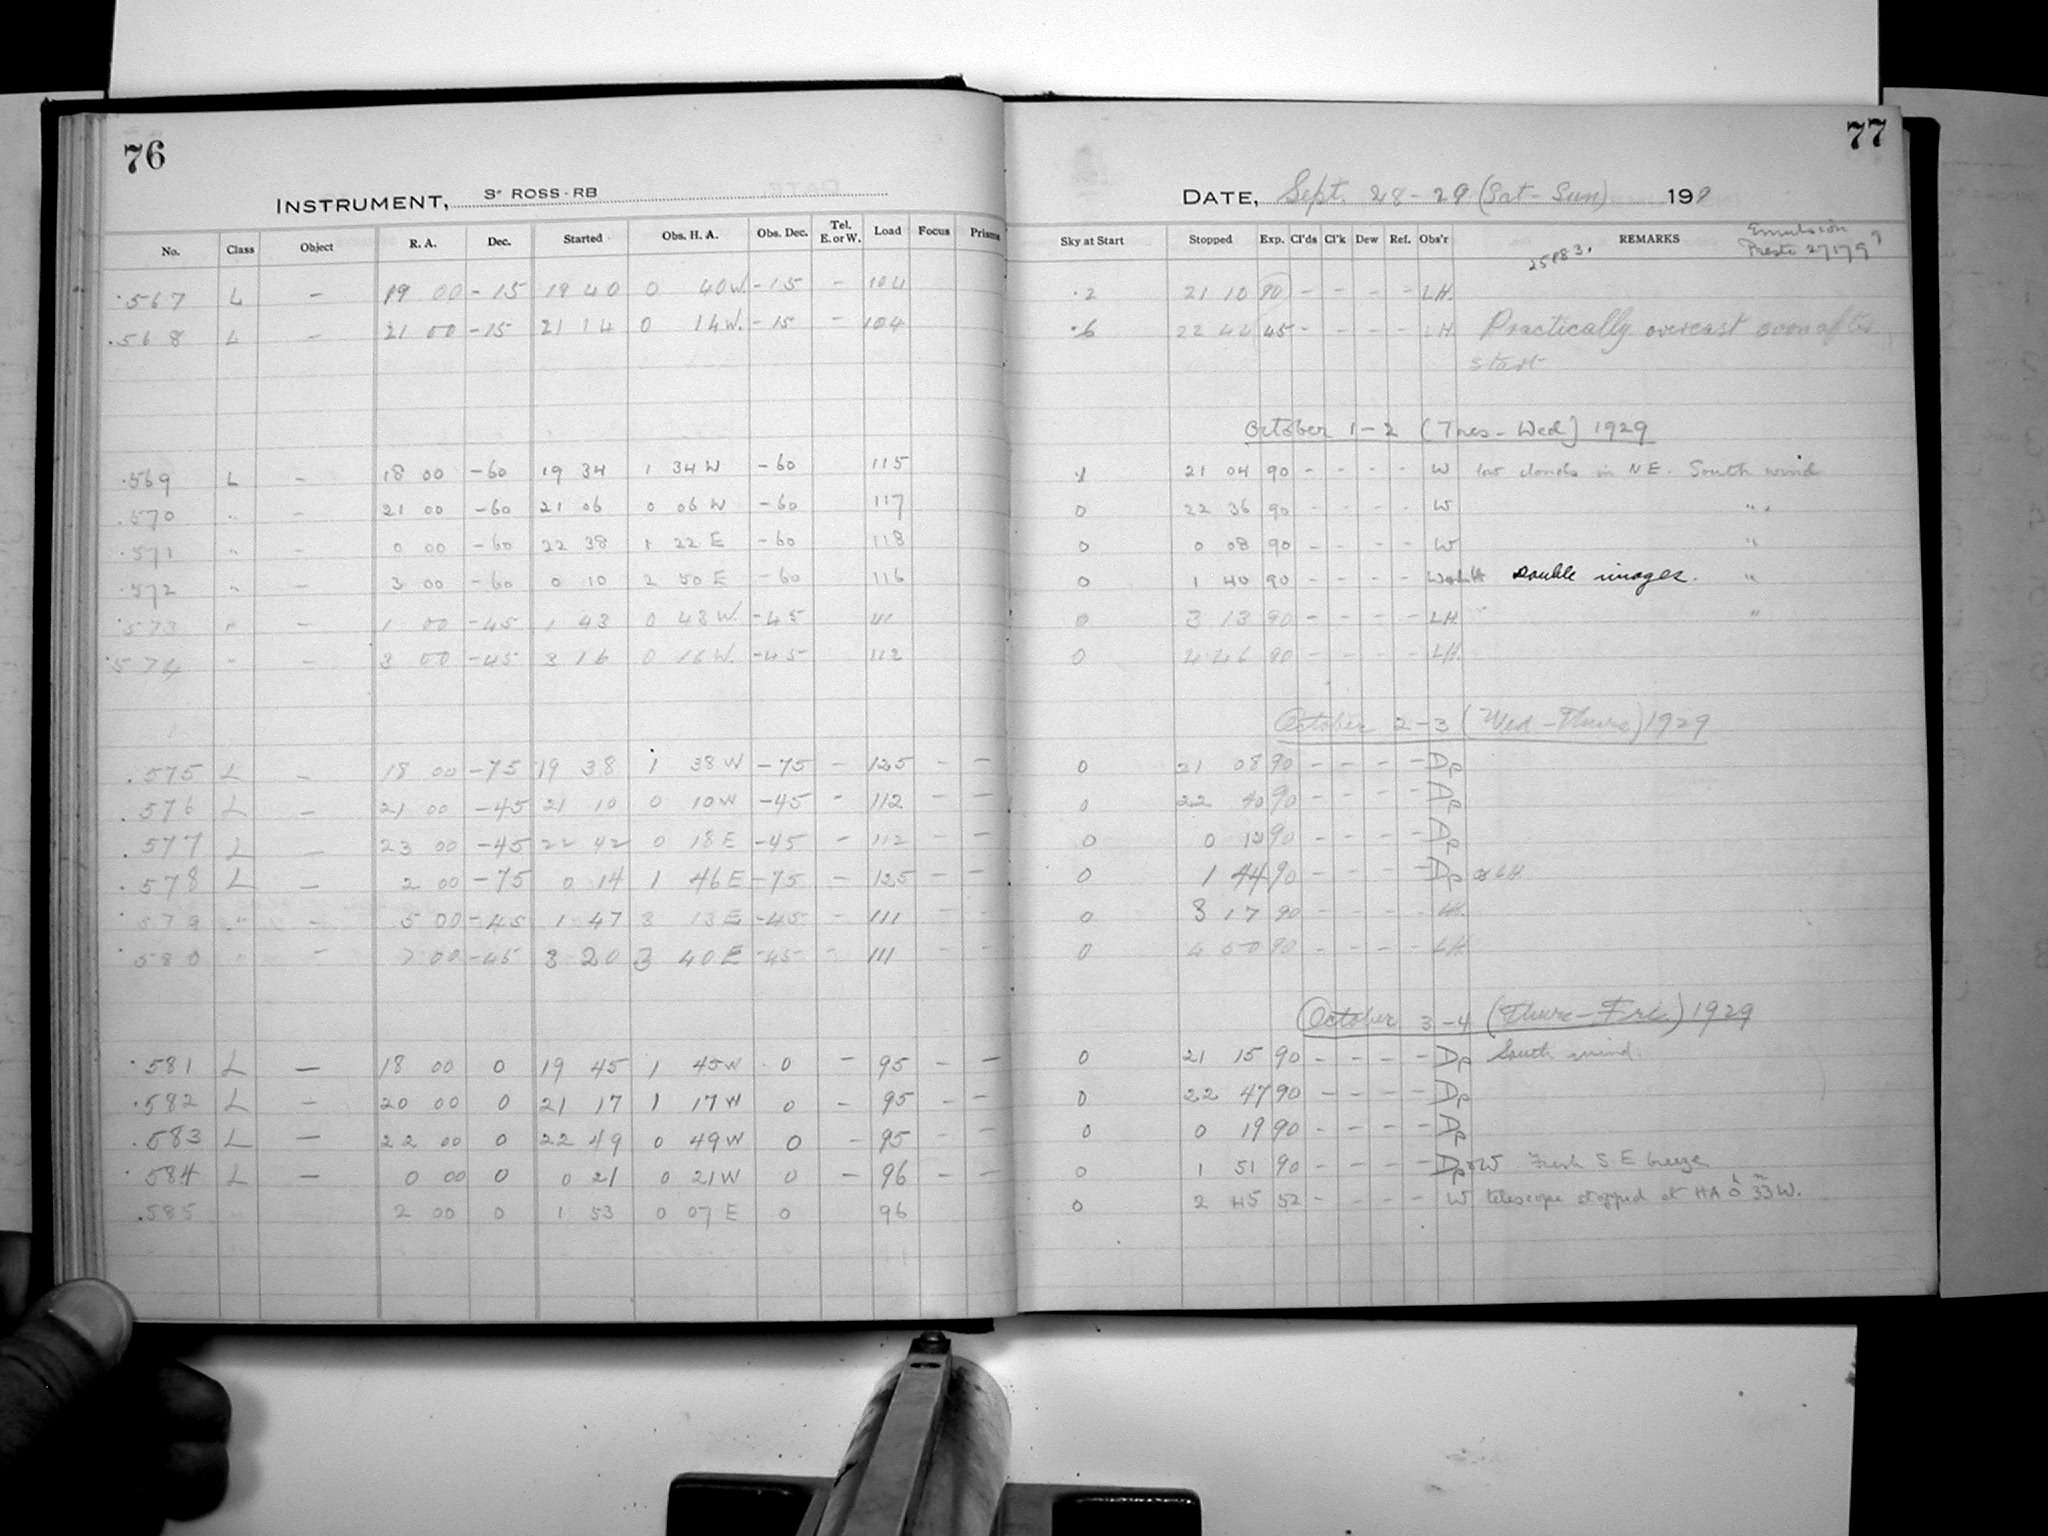 76
INSTRUMENT, 3" ROSS-RB
No. Class Object R. A. Dec. Started Obs. H. A. Obs. Dec. Tel. E. or W. Load Focus Prisms
.567 L - 19 00 -15 19 40 0 40 W. -15 - 104
.568 L - 21 00 -15 21 14 0 14 W. -15 - 104
.569 L - 18 00 -60 19 34 1 34 W -60 115
.570 " - 21 00 -60 21 06 0 06 W -60 117
.571 " - 0 00 -60 22 38 1 22 E -60 118
.572 " - 3 00 -60 0 10 2 50 E -60 116
.573 " - 1 00 -45 1 43 0 43 W. -45 111
.574 " - 3 00 -45 3 16 0 16 W. -45 112
.575 L - 18 00 -75 19 38 1 38 W -75 - 125 - -
.576 L - 21 00 -45 21 10 0 10 W -45 - 112 - -
.577 L - 23 00 -45 22 42 0 18 E -45 - 112 - -
.578 L - 2 00 -75 0 14 1 46 E -75 - 125 - -
.579 " - 5 00 -45 1 47 3 13 E -45 - 111 - -
.580 " - 7 00 -45 3 20 3 40 E -45 - 111 - -
.581 L - 18 00 0 19 45 1 45 W 0 - 95 - -
.582 L - 20 00 0 21 17 1 17 W 0 - 95 - -
.583 L - 22 00 0 22 49 0 49 W 0 - 95 - -
.584 L - 0 00 0 0 21 0 21 W 0 - 96 - -
.585 2 00 0 1 53 0 07 E 0 96
77
DATE, Sept. 28-29 (Sat-Sun) 199
Sky at Start Stopped Exp. Cl'ds Cl'k Dew Ref. Obs'r REMARKS Emulsion
Presto 27179
.2 21 10 90 - - - - LH.
.6 22 44 45 - - - - LH Practically overcast soon after
start
October 1-2 (Tues-Wed) 1929
21 04 90 - - - - W low clouds in NE. South wind
0 22 36 90 - - - - W "
0 0 08 90 - - - - W "
0 1 40 90 - - - - W&LH Double images. "
0 3 13 90 - - - - LH "
0 4 46 90 - - - - LH.
October 2-3 (Wed-Thurs) 1929
0 21 08 90 - - - - Dp
0 22 40 90 - - - - Dp
0 0 12 90 - - - - Dp
0 1 44 90 - - - - Dp & LH
0 3 17 90 - - - - LH.
0 4 50 90 - - - - LH
October 3-4 (Thurs-Fri.) 1929
0 21 15 90 - - - - Dp South wind.
0 22 47 90 - - - - Dp
0 0 19 90 - - - - Dp
0 1 51 90 - - - - Dp & W Fresh S E breeze
0 2 45 52 - - - - W telescope stopped at HA 0h 33m W.